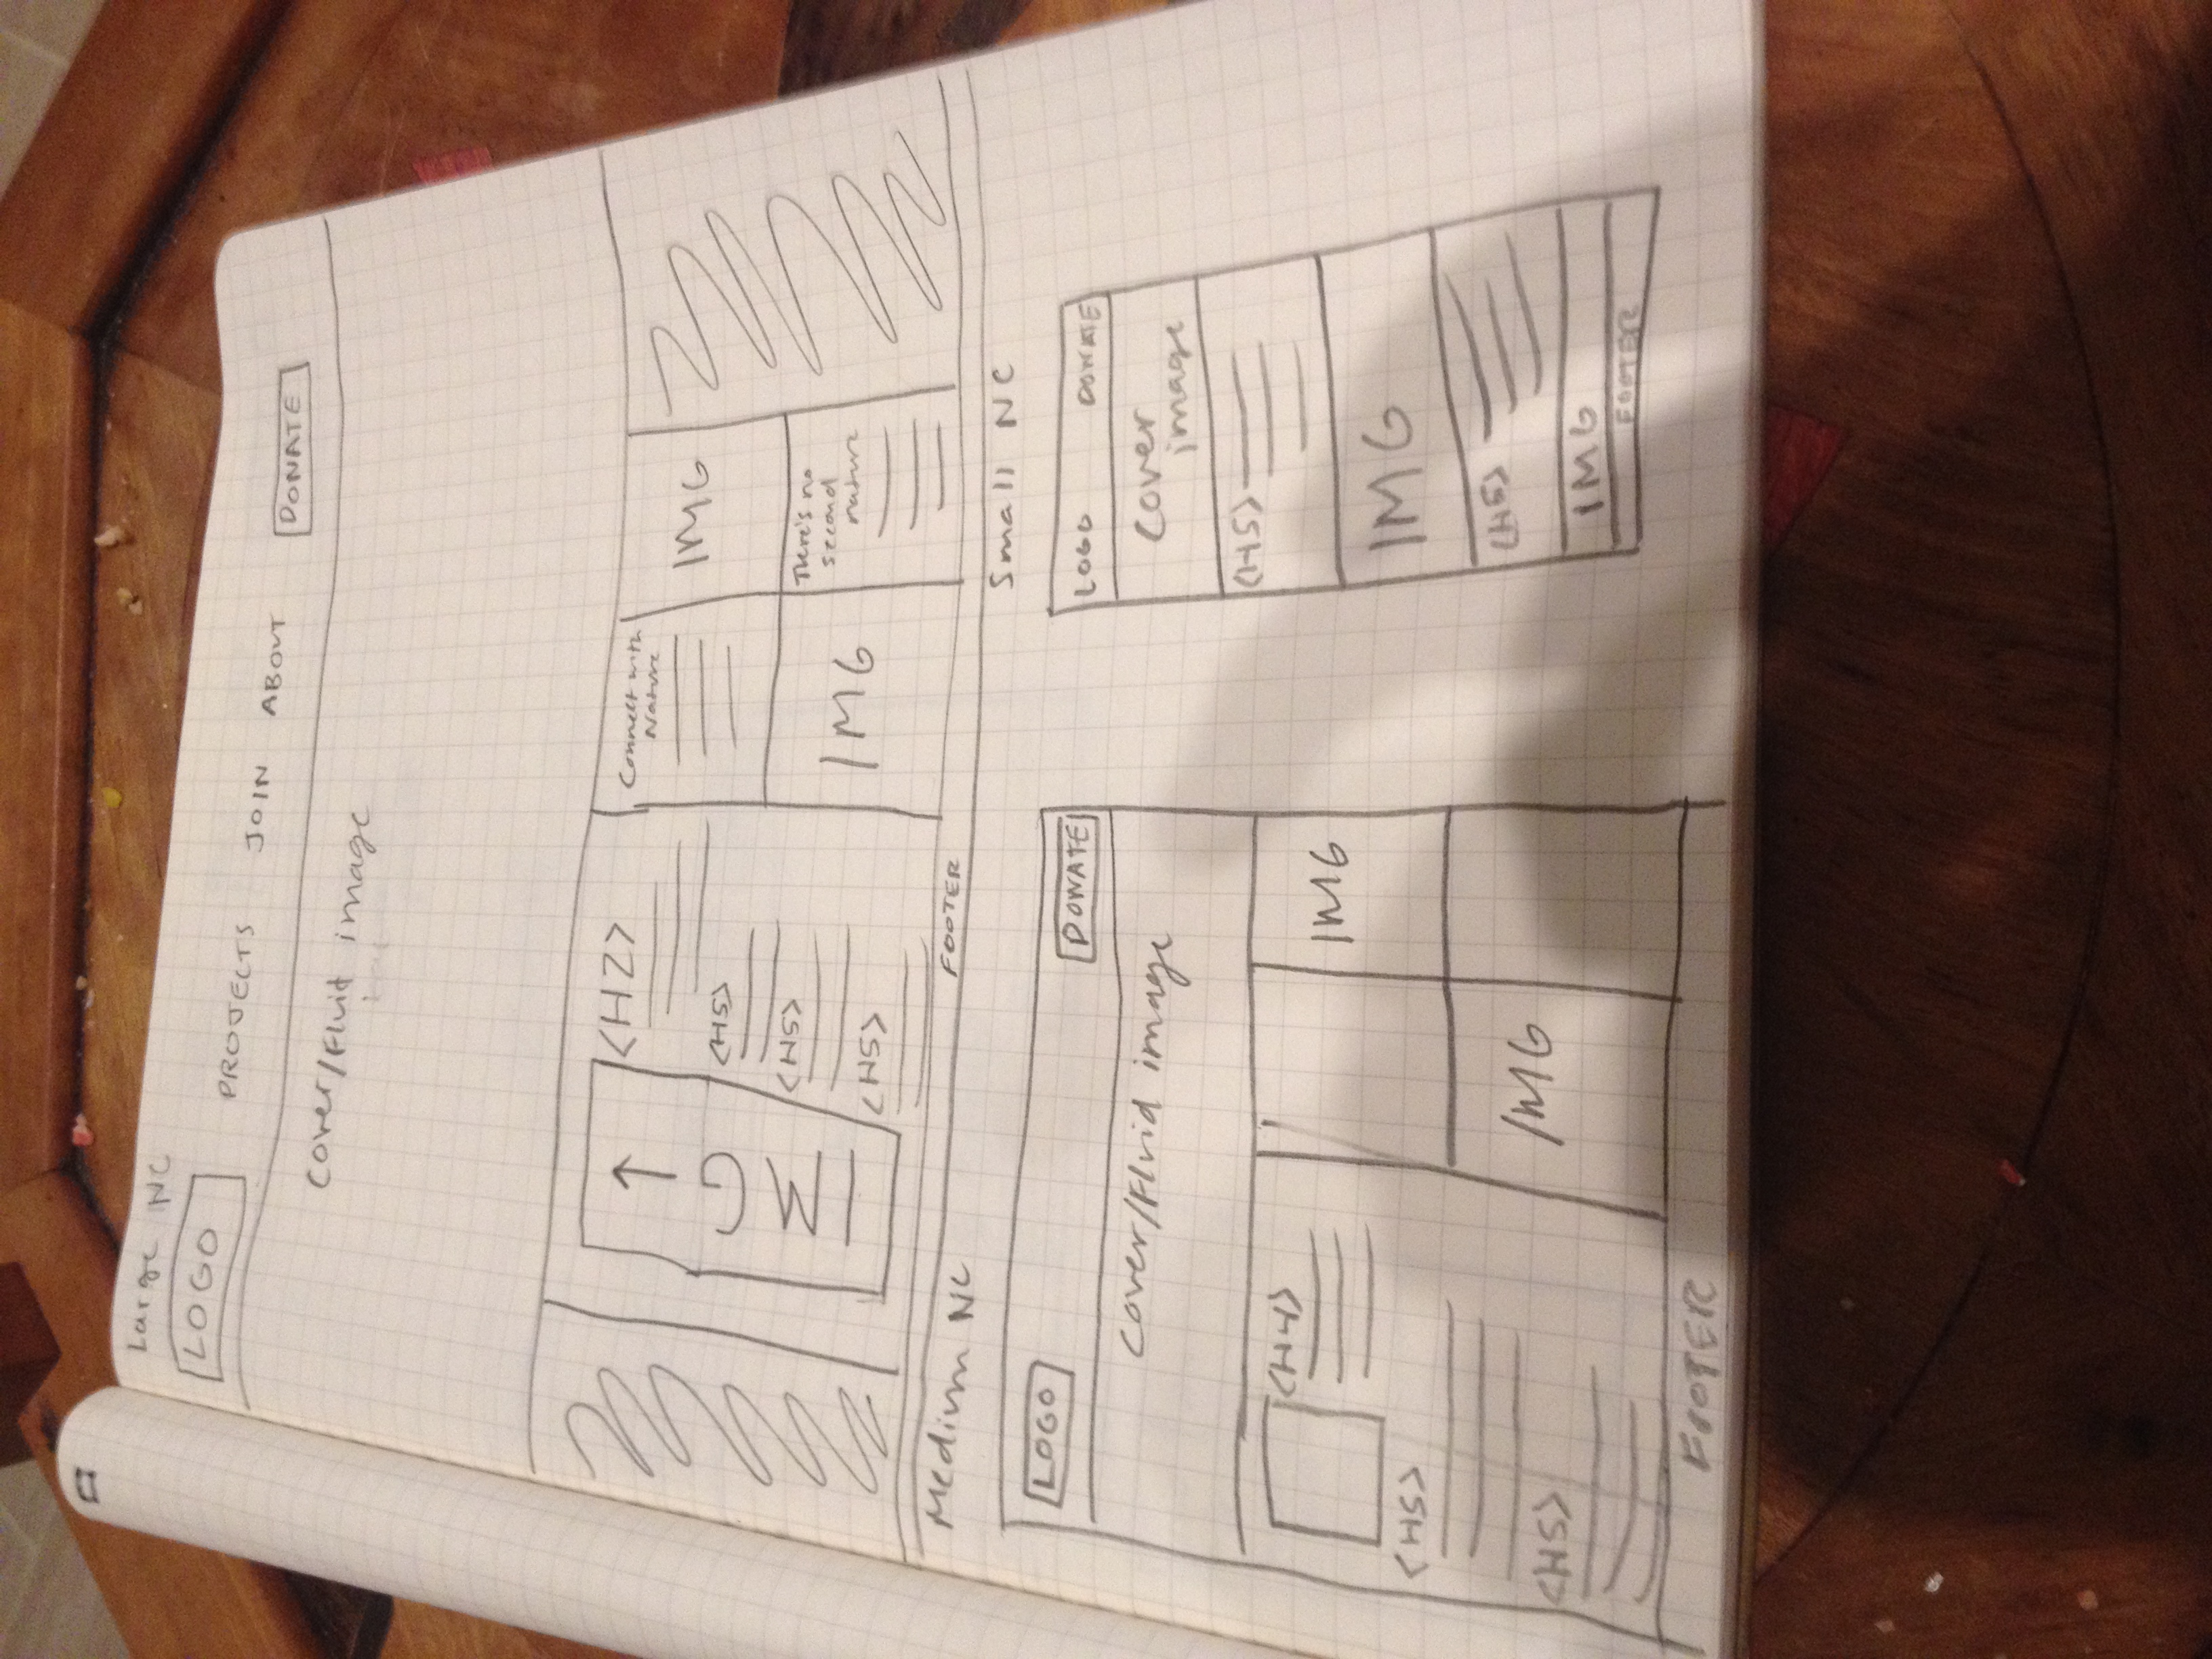 Large NC
LOGO
PROJECTS JOIN ABOUT DONATE
Cover/Fluid image
IMG
<H2>
<H5>
<H5>
<H5>
Connect with
Nature
IMG
IMG
There's no
second
nature
FOOTER
Medium NC
LOGO
DONATE
Cover/Fluid image
<H4>
<H5>
<H5>
IMG
IMG
FOOTER
Small NC
LOGO DONATE
Cover
image
<H5>
IMG
<H5>
IMG
FOOTER